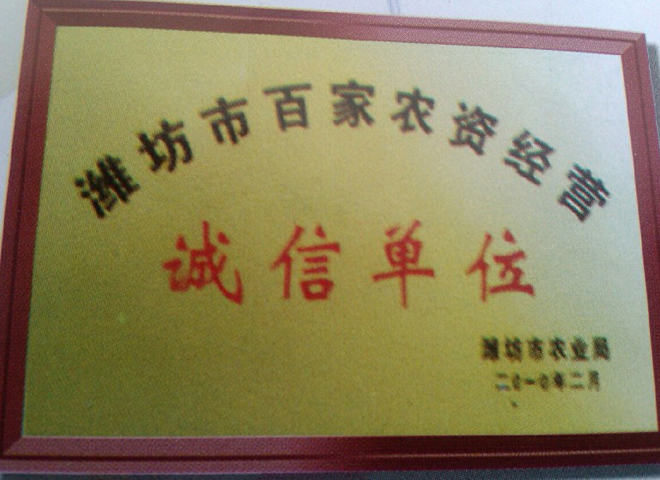 潍坊市百家农资经营
诚信单位
潍坊市农业局
二0一0年二月